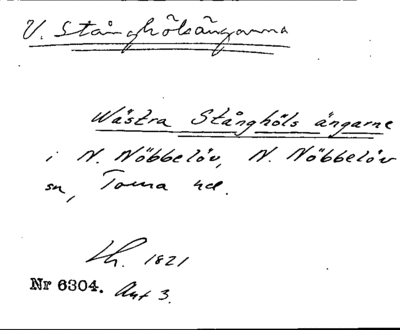 V. Stånghölsängarna
Wästra Stånghöls ängarne
i N. Nöbbelöv, N. Nöbbelöv
sn, Torna hd.
Lh. 1821
Nr 6304. Akt 3.